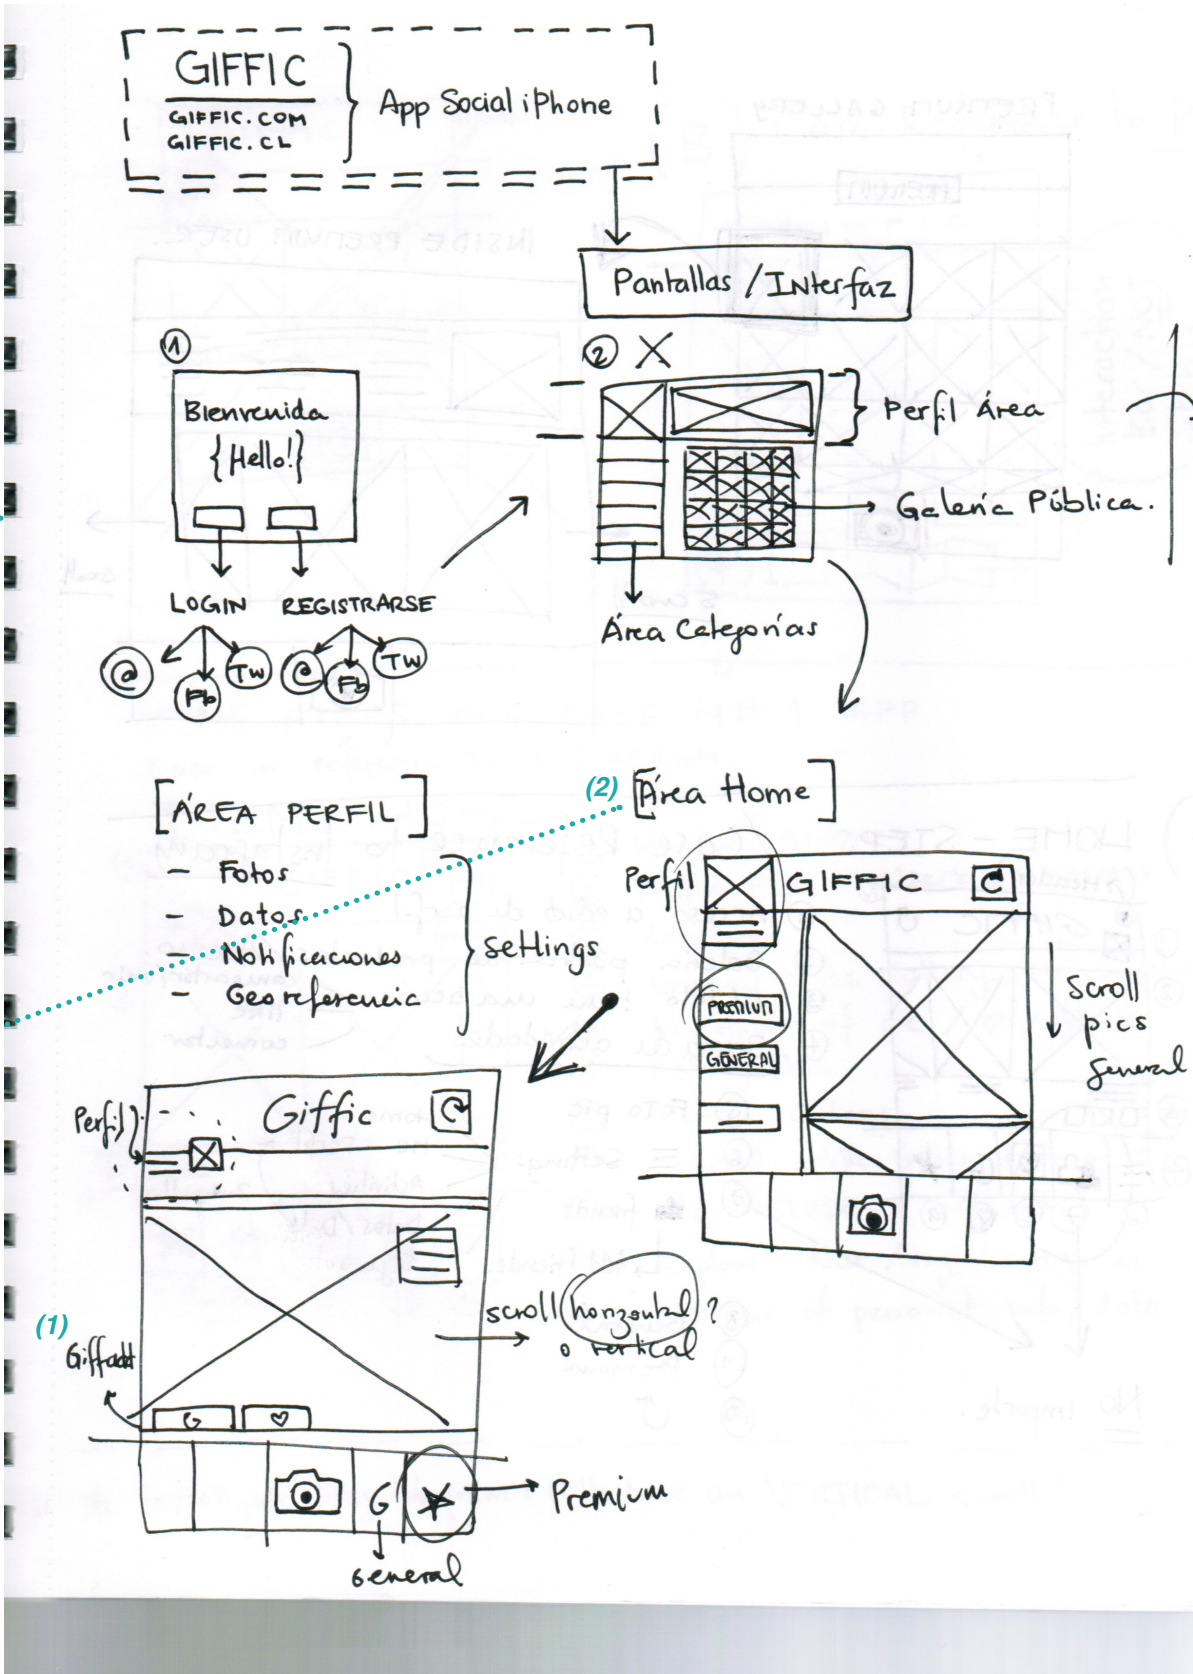 GIFFIC
GIFFIC.COM
GIFFIC.CL
App Social iPhone
Pantallas / Interfaz
1
Bienvenida
{Hello!}
LOGIN
REGISTRARSE
@
Fb
Tw
@
Fb
Tw
2 X
Perfil Área
Galería Pública.
Área Categorías
[ÁREA PERFIL]
- Fotos
- Datos
- Notificaciones
- Georeferencia
settings
(2)
[Área Home]
Perfil
GIFFIC
PREMIUM
GENERAL
Scroll
pics
general
Perfil
Giffic
(1)
Giffadd
G
scroll horizontal ?
o vertical
G
Premium
General